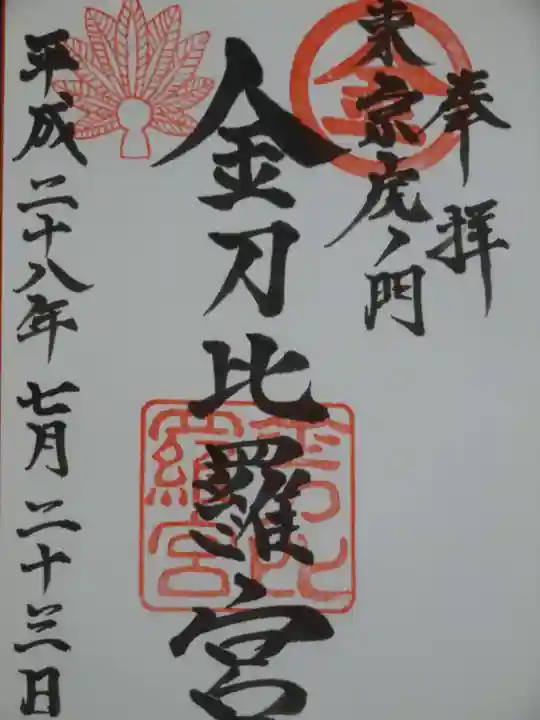 奉拝
東京虎ノ門
金刀比羅宮
平成二十八年七月二十三日
金
金刀比
羅宮